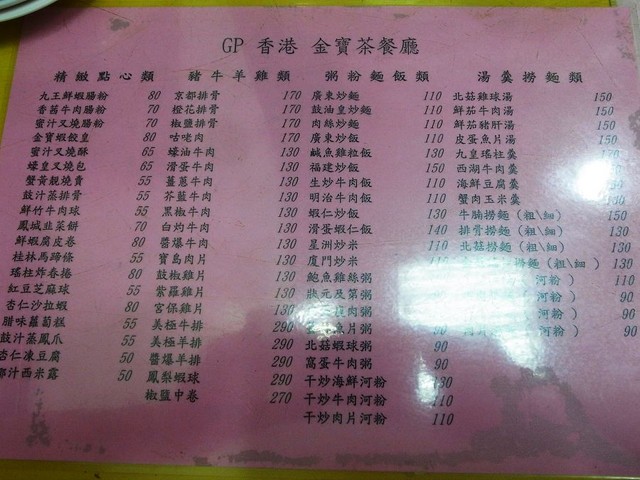 GP 香港 金寶茶餐廳
精緻點心類
九王鮮蝦腸粉 80
香茜牛肉腸粉 70
蜜汁叉燒腸粉 70
金寶蝦餃皇 80
蜜汁叉燒酥 65
蠔皇叉燒包 65
蟹黃靚燒賣 55
豉汁蒸排骨 55
鮮竹牛肉球 55
鳳城韭菜餅 70
鮮蝦腐皮卷 80
桂林馬蹄條 55
瑤柱炸春捲 80
紅豆芝麻球 55
杏仁沙拉蝦 80
腊味蘿蔔糕 55
豉汁蒸鳳爪 55
杏仁凍豆腐 50
汁西米露 50
豬牛羊雞類
京都排骨 170
橙花排骨 170
椒鹽排骨 170
咕咾肉 170
蠔油牛肉 130
滑蛋牛肉 130
薑蔥牛肉 130
芥藍牛肉 130
黑椒牛肉 130
白灼牛肉 130
醬爆牛肉 130
寶島肉片 130
豉椒雞片 130
紫蘿雞片 130
宮保雞片 130
美極牛排 290
美極羊排 290
醬爆羊排 290
鳳梨蝦球 290
椒鹽中卷 270
粥粉麵飯類
廣東炒麵 110
豉油皇炒麵 110
肉絲炒麵 110
廣東炒飯 110
鹹魚雞粒飯 130
福建炒飯 150
生炒牛肉飯 110
明治牛肉飯 110
蝦仁炒飯 130
滑蛋蝦仁飯 140
星洲炒米 110
廈門炒米
鮑魚雞絲粥
狀元及第粥
肉粥
魚片粥 90
北菇蝦球粥 90
窩蛋牛肉粥 90
干炒海鮮河粉 130
干炒牛肉河粉 110
干炒肉片河粉 110
湯羹撈麵類
北菇雞球湯 150
鮮茄牛肉湯 150
鮮茄豬肝湯 150
皮蛋魚片湯 150
九皇瑤柱羹 170
西湖牛肉羹
海鮮豆腐羹
蟹肉玉米羹
牛腩撈麵(粗\細) 150
排骨撈麵(粗\細) 130
北菇撈麵(粗\細) 130
撈麵(粗\細) 130
河粉) 110
河粉) 90
河粉) 90
河粉) 90